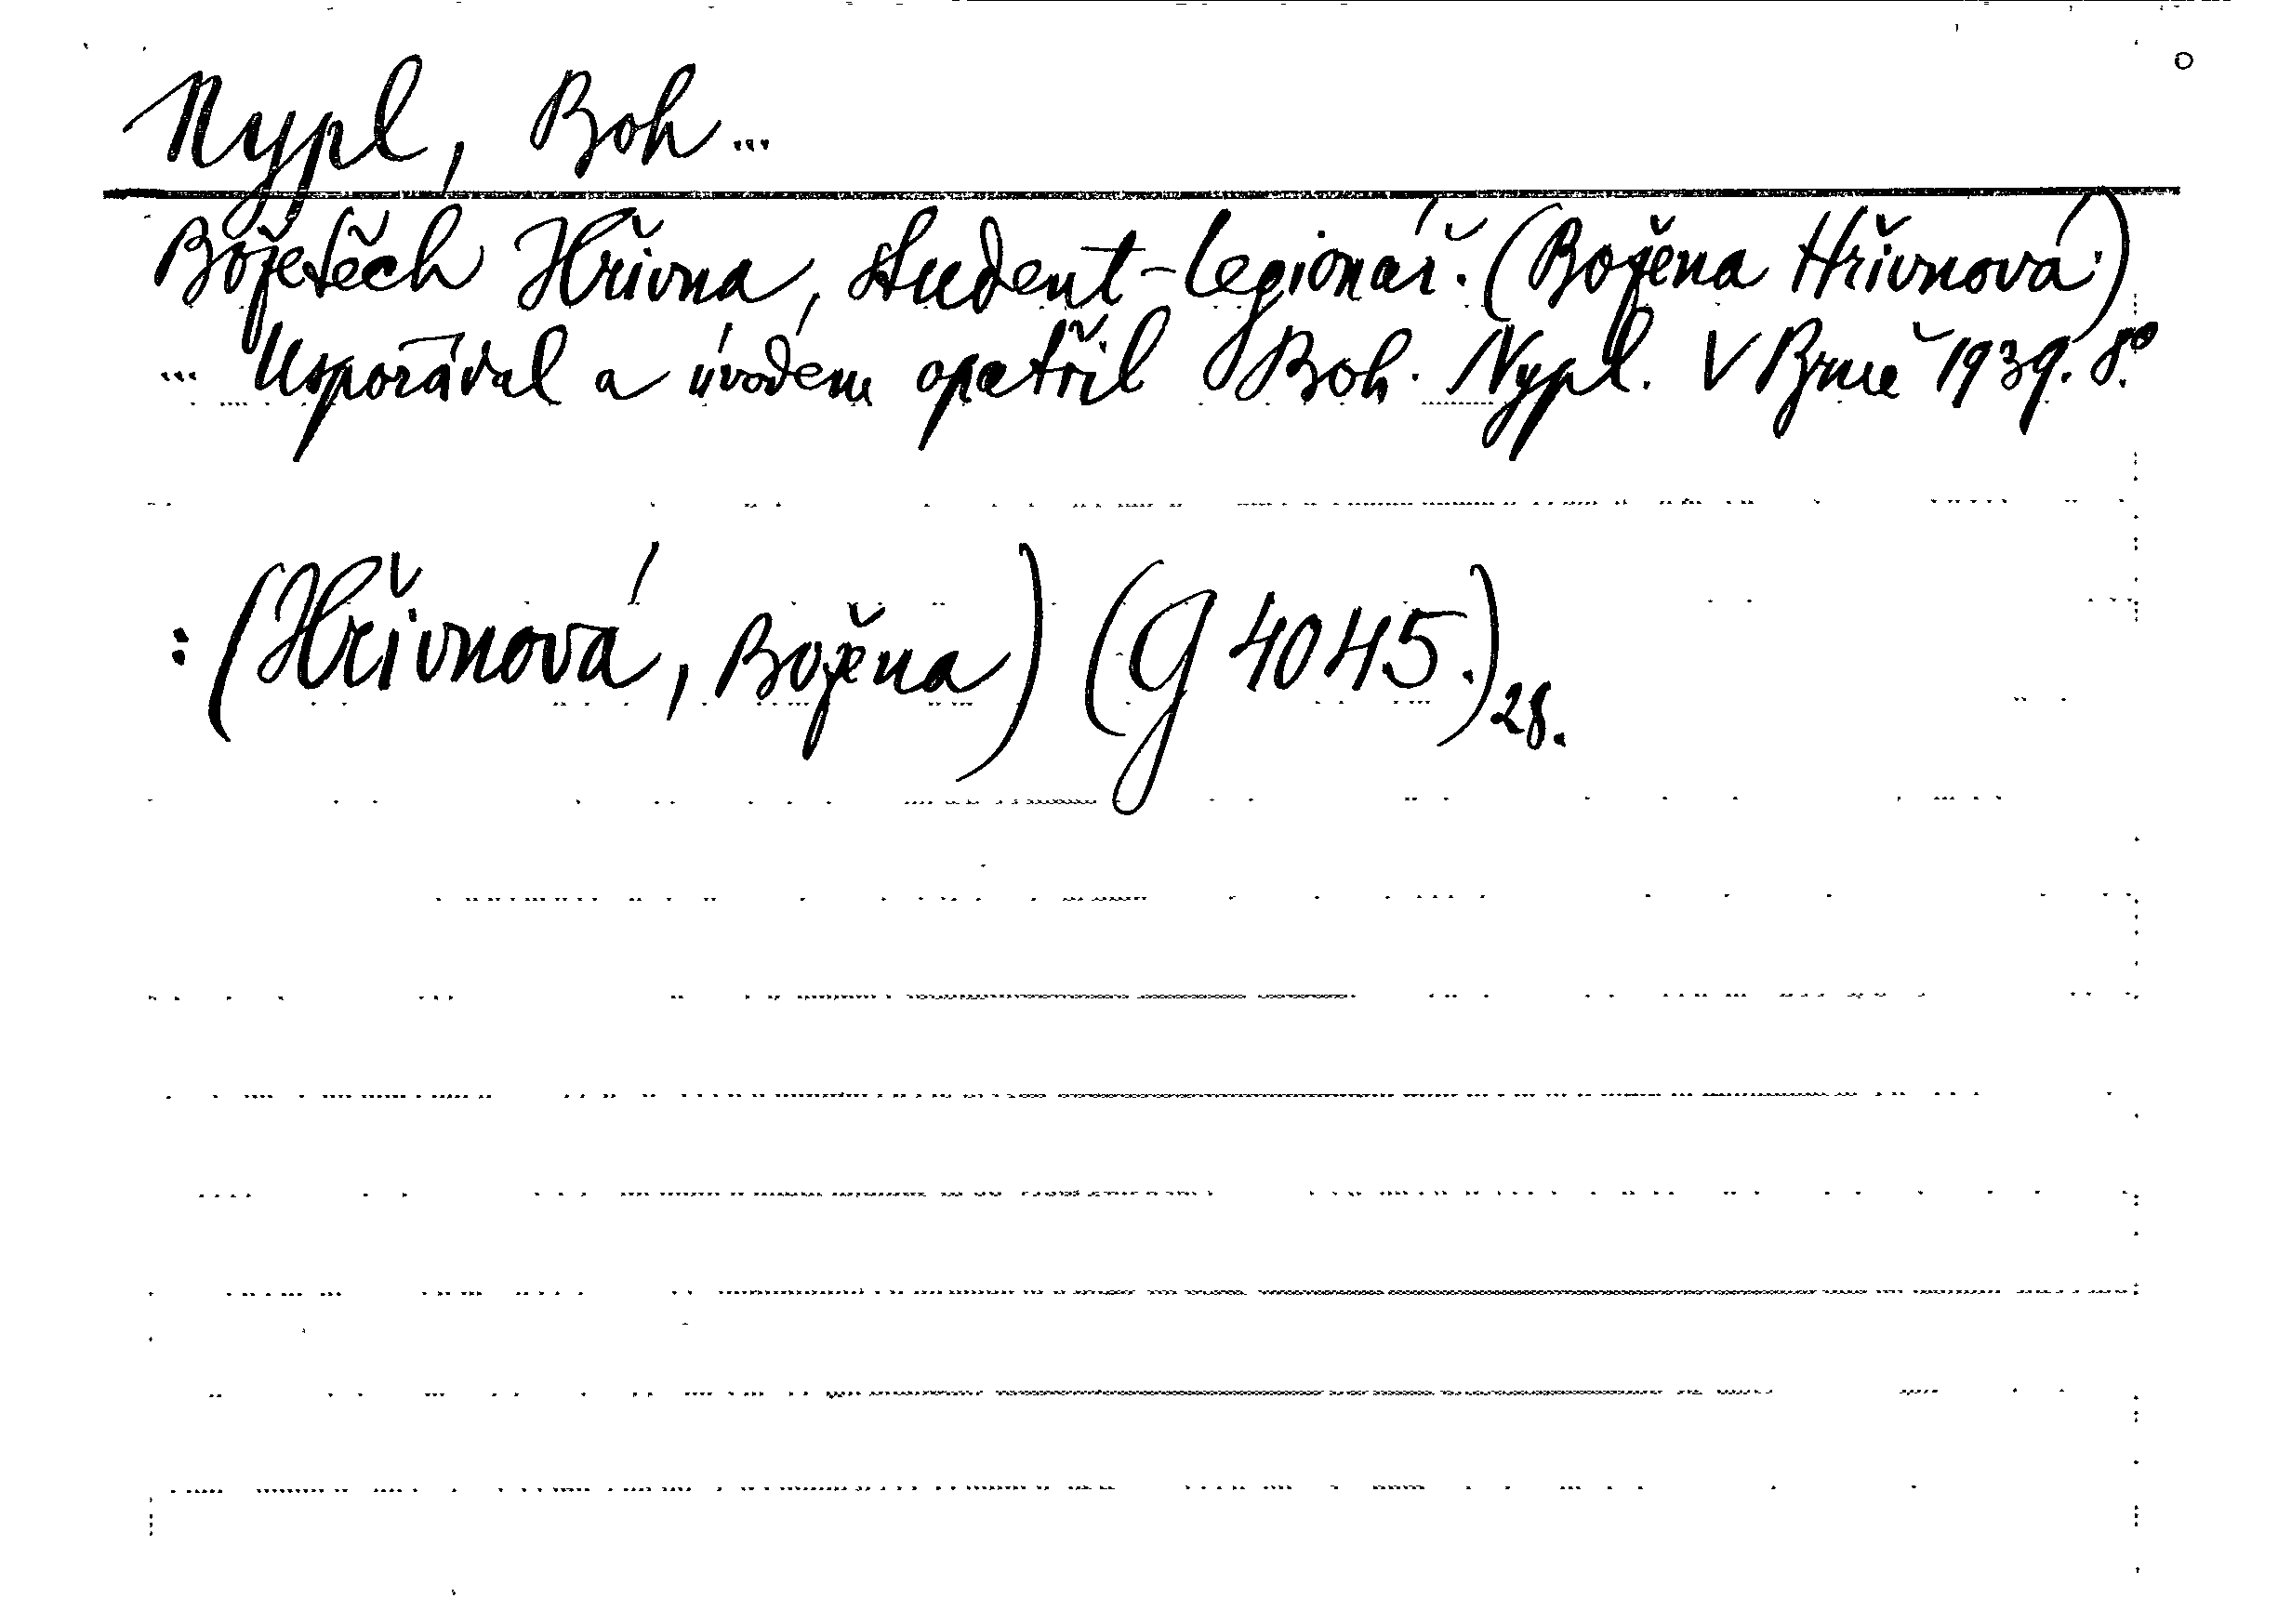 Nypl, Boh...
Božetěch Hřivna, student-legionář. (Božena Hřivnová.)
... Uspořádal a úvodem opatřil Boh. Nypl. V Brně 1939. 8°.
: (Hřivnová, Božena) (G 4045.) 28.